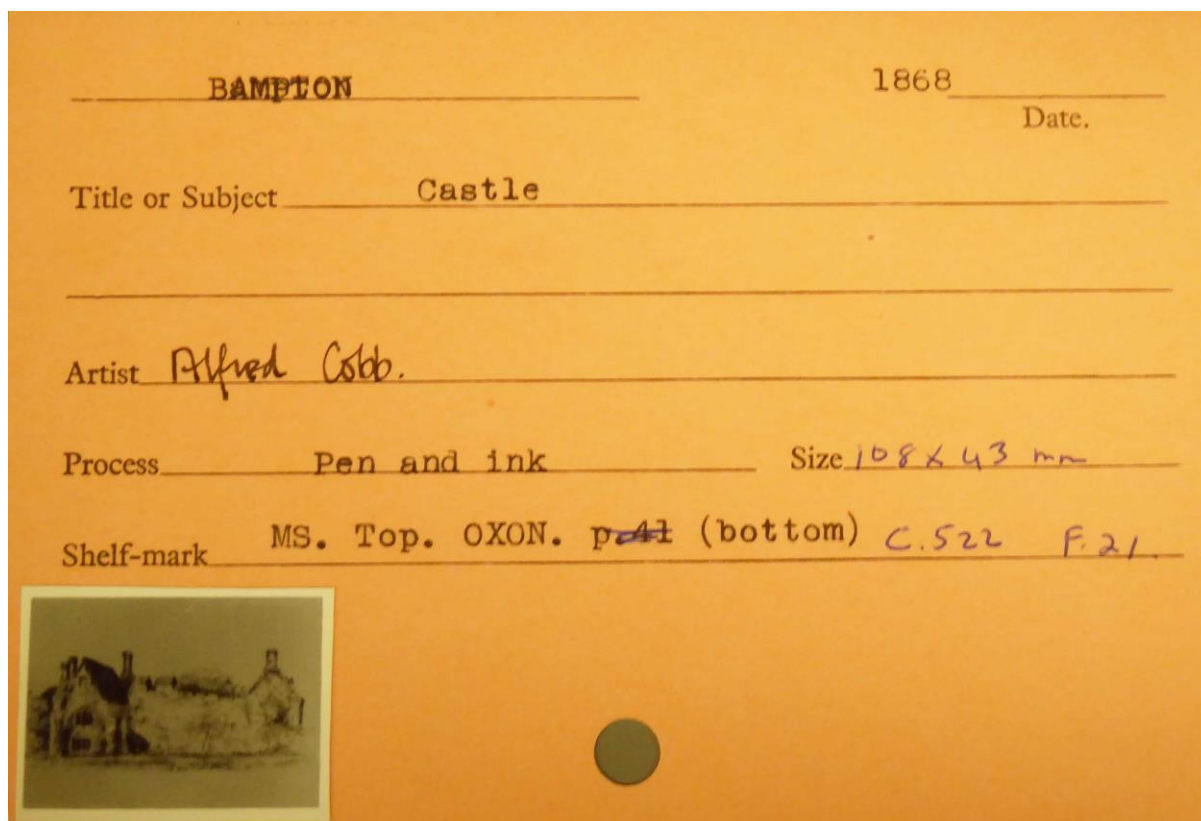 BAMPTON 1868
Date.
Title or Subject Castle
Artist Alfred Cobb.
Process Pen and ink Size 108 x 43 mm
Shelf-mark MS. Top. OXON. p.41 (bottom) C.522 F.21.